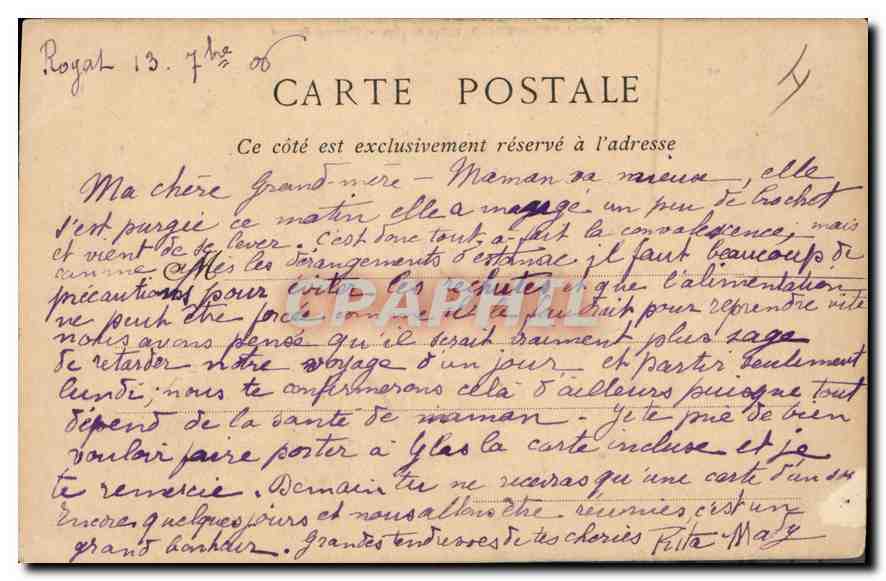 Royat 13. 7bre 06
CARTE POSTALE
Ce côté est exclusivement réservé à l'adresse
Ma chère Grand-mère - Maman va mieux, elle
s'est purgée ce matin elle a mangé un peu de brochet
et vient de se lever. C'est donc tout-à-fait la convalescence, mais
comme après les dérangements d'estomac il faut beaucoup de
précautions pour éviter les rechutes et que l'alimentation
ne peut être forcée comme il le faudrait pour reprendre vite
nous avons pensé qu'il serait vraiment plus sage
de retarder notre voyage d'un jour et partir seulement
lundi; nous te confirmerons celà d'ailleurs puisque tout
dépend de la santé de maman. Je te prie de bien
vouloir faire porter à Glas la carte incluse et je
te remercie. Demain tu ne recevras qu'une carte d'un sou
Encore quelques jours et nous allons être réunies c'est un
grand bonheur. Grandes tendresses de tes chéries Rita-Mady
CPAPHIL